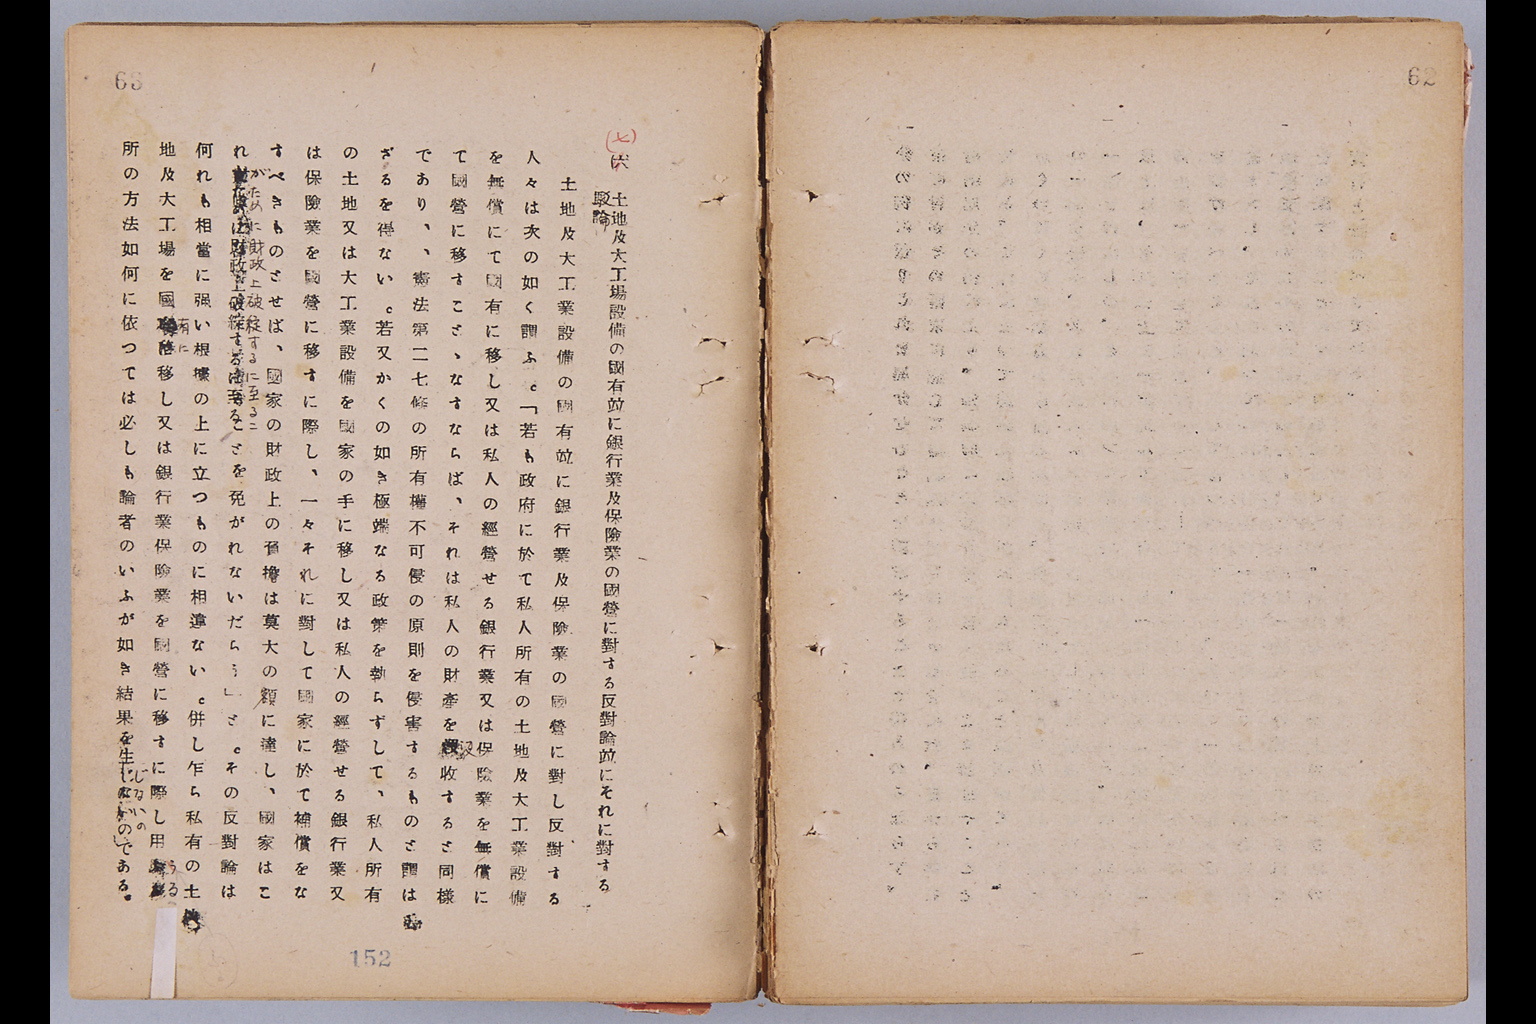 62
63
(七)
六 土地及大工場設備の國有竝に銀行業及保險業の國營に對する反對論竝にそれに對する
駁論
土地及大工業設備の國有竝に銀行業及保險業の國營に對し反對する
人々は次の如く謂ふ。「若も政府に於て私人所有の土地及大工業設備
を無償にて國有に移し又は私人の經營せる銀行業又は保險業を無償に
て國營に移すこと、なすならば、それは私人の財產を沒收すると同樣
であり、、憲法第二七條の所有權不可侵の原則を侵害するものと謂は
ざるを得ない。若又かくの如き極端なる政策を執らずして、私人所有
の土地又は大工業設備を國家の手に移し又は私人の經營せる銀行業又
は保險業を國營に移すに際し、一々それに對して國家に於て補償をな
すべきものとせば、國家の財政上の負擔は莫大の額に達し、國家はこ
れがために財政上破綻するに至ることを免がれないだらう」と。その反對論は
何れも相當に强い根據の上に立つものに相違ない。併し乍ら私有の土
地及大工場を國有に移し又は銀行業保險業を國營に移すに際し用うる
所の方法如何に依つては必しも論者のいふが如き結果を生じないのである。
152